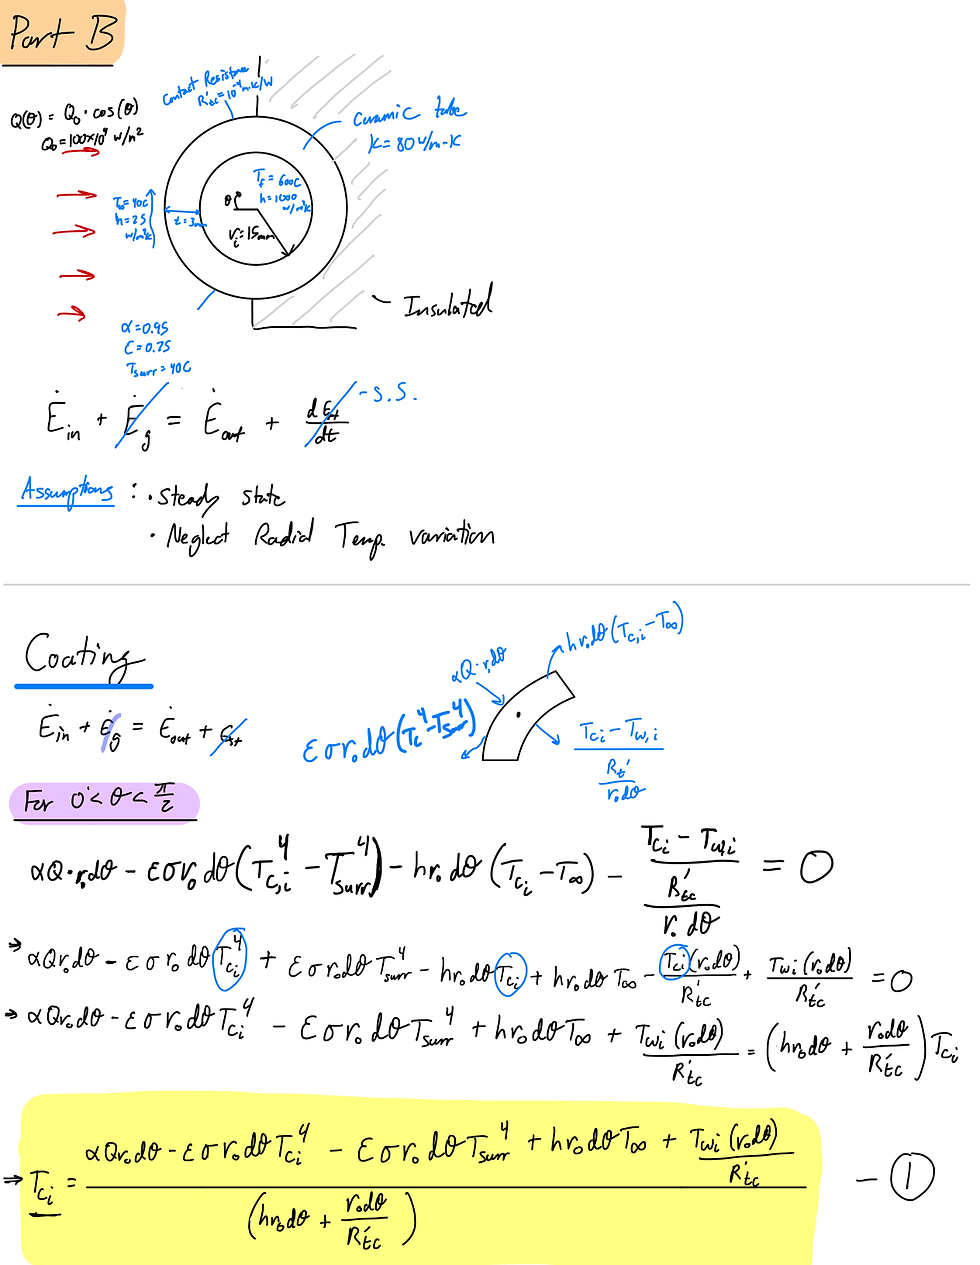 Part B
Contact Resistance
R'tc = 10⁻⁴ m·K/W
Q(θ) = Q₀ · cos(θ)
Q₀ = 100×10⁴ W/m²
Ceramic tube
K = 80 W/m-K
T∞ = 40C
h = 25
W/m²K
t = 3mm
θ
Tf = 600C
h = 1000
W/m²K
rᵢ = 15mm
Insulated
α = 0.95
ε = 0.75
Tsurr = 40C
Ėin + Ėg = Ėout + dEst/dt - S.S.
Assumptions : · Steady state
· Neglect Radial Temp. variation
Coating
Ėin + Ėg = Ėout + Ėst
αQ·r₀dθ
hr₀dθ(Tc,i − T∞)
εσr₀dθ(Tc⁴ − Tsurr⁴)
(Tci − Tw,i) / (Rt' / r₀dθ)
For 0 < θ < π/2
αQ·r₀dθ − εσr₀dθ(Tc,i⁴ − Tsurr⁴) − hr₀dθ(Tci − T∞) − (Tci − Twi) / (R'tc / r₀dθ) = 0
→ αQr₀dθ − εσr₀dθTci⁴ + εσr₀dθTsurr⁴ − hr₀dθTci + hr₀dθT∞ − Tci(r₀dθ)/R'tc + Twi(r₀dθ)/R'tc = 0
→ αQr₀dθ − εσr₀dθTci⁴ − εσr₀dθTsurr⁴ + hr₀dθT∞ + Twi(r₀dθ)/R'tc = (hr₀dθ + r₀dθ/R'tc)Tci
⇒ Tci = (αQr₀dθ − εσr₀dθTci⁴ − εσr₀dθTsurr⁴ + hr₀dθT∞ + Twi(r₀dθ)/R'tc) / (hr₀dθ + r₀dθ/R'tc) — ①